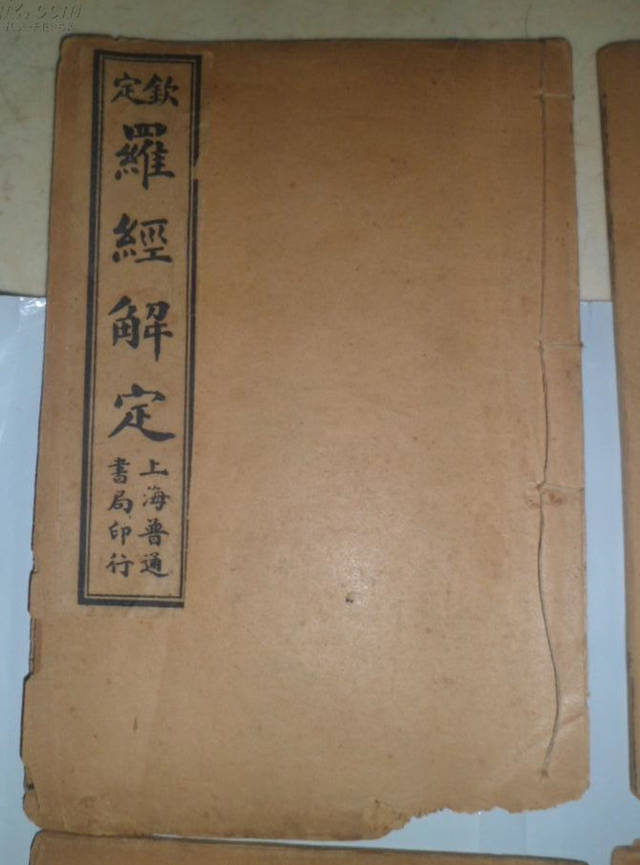 欽定
羅經解定
上海普通
書局印行